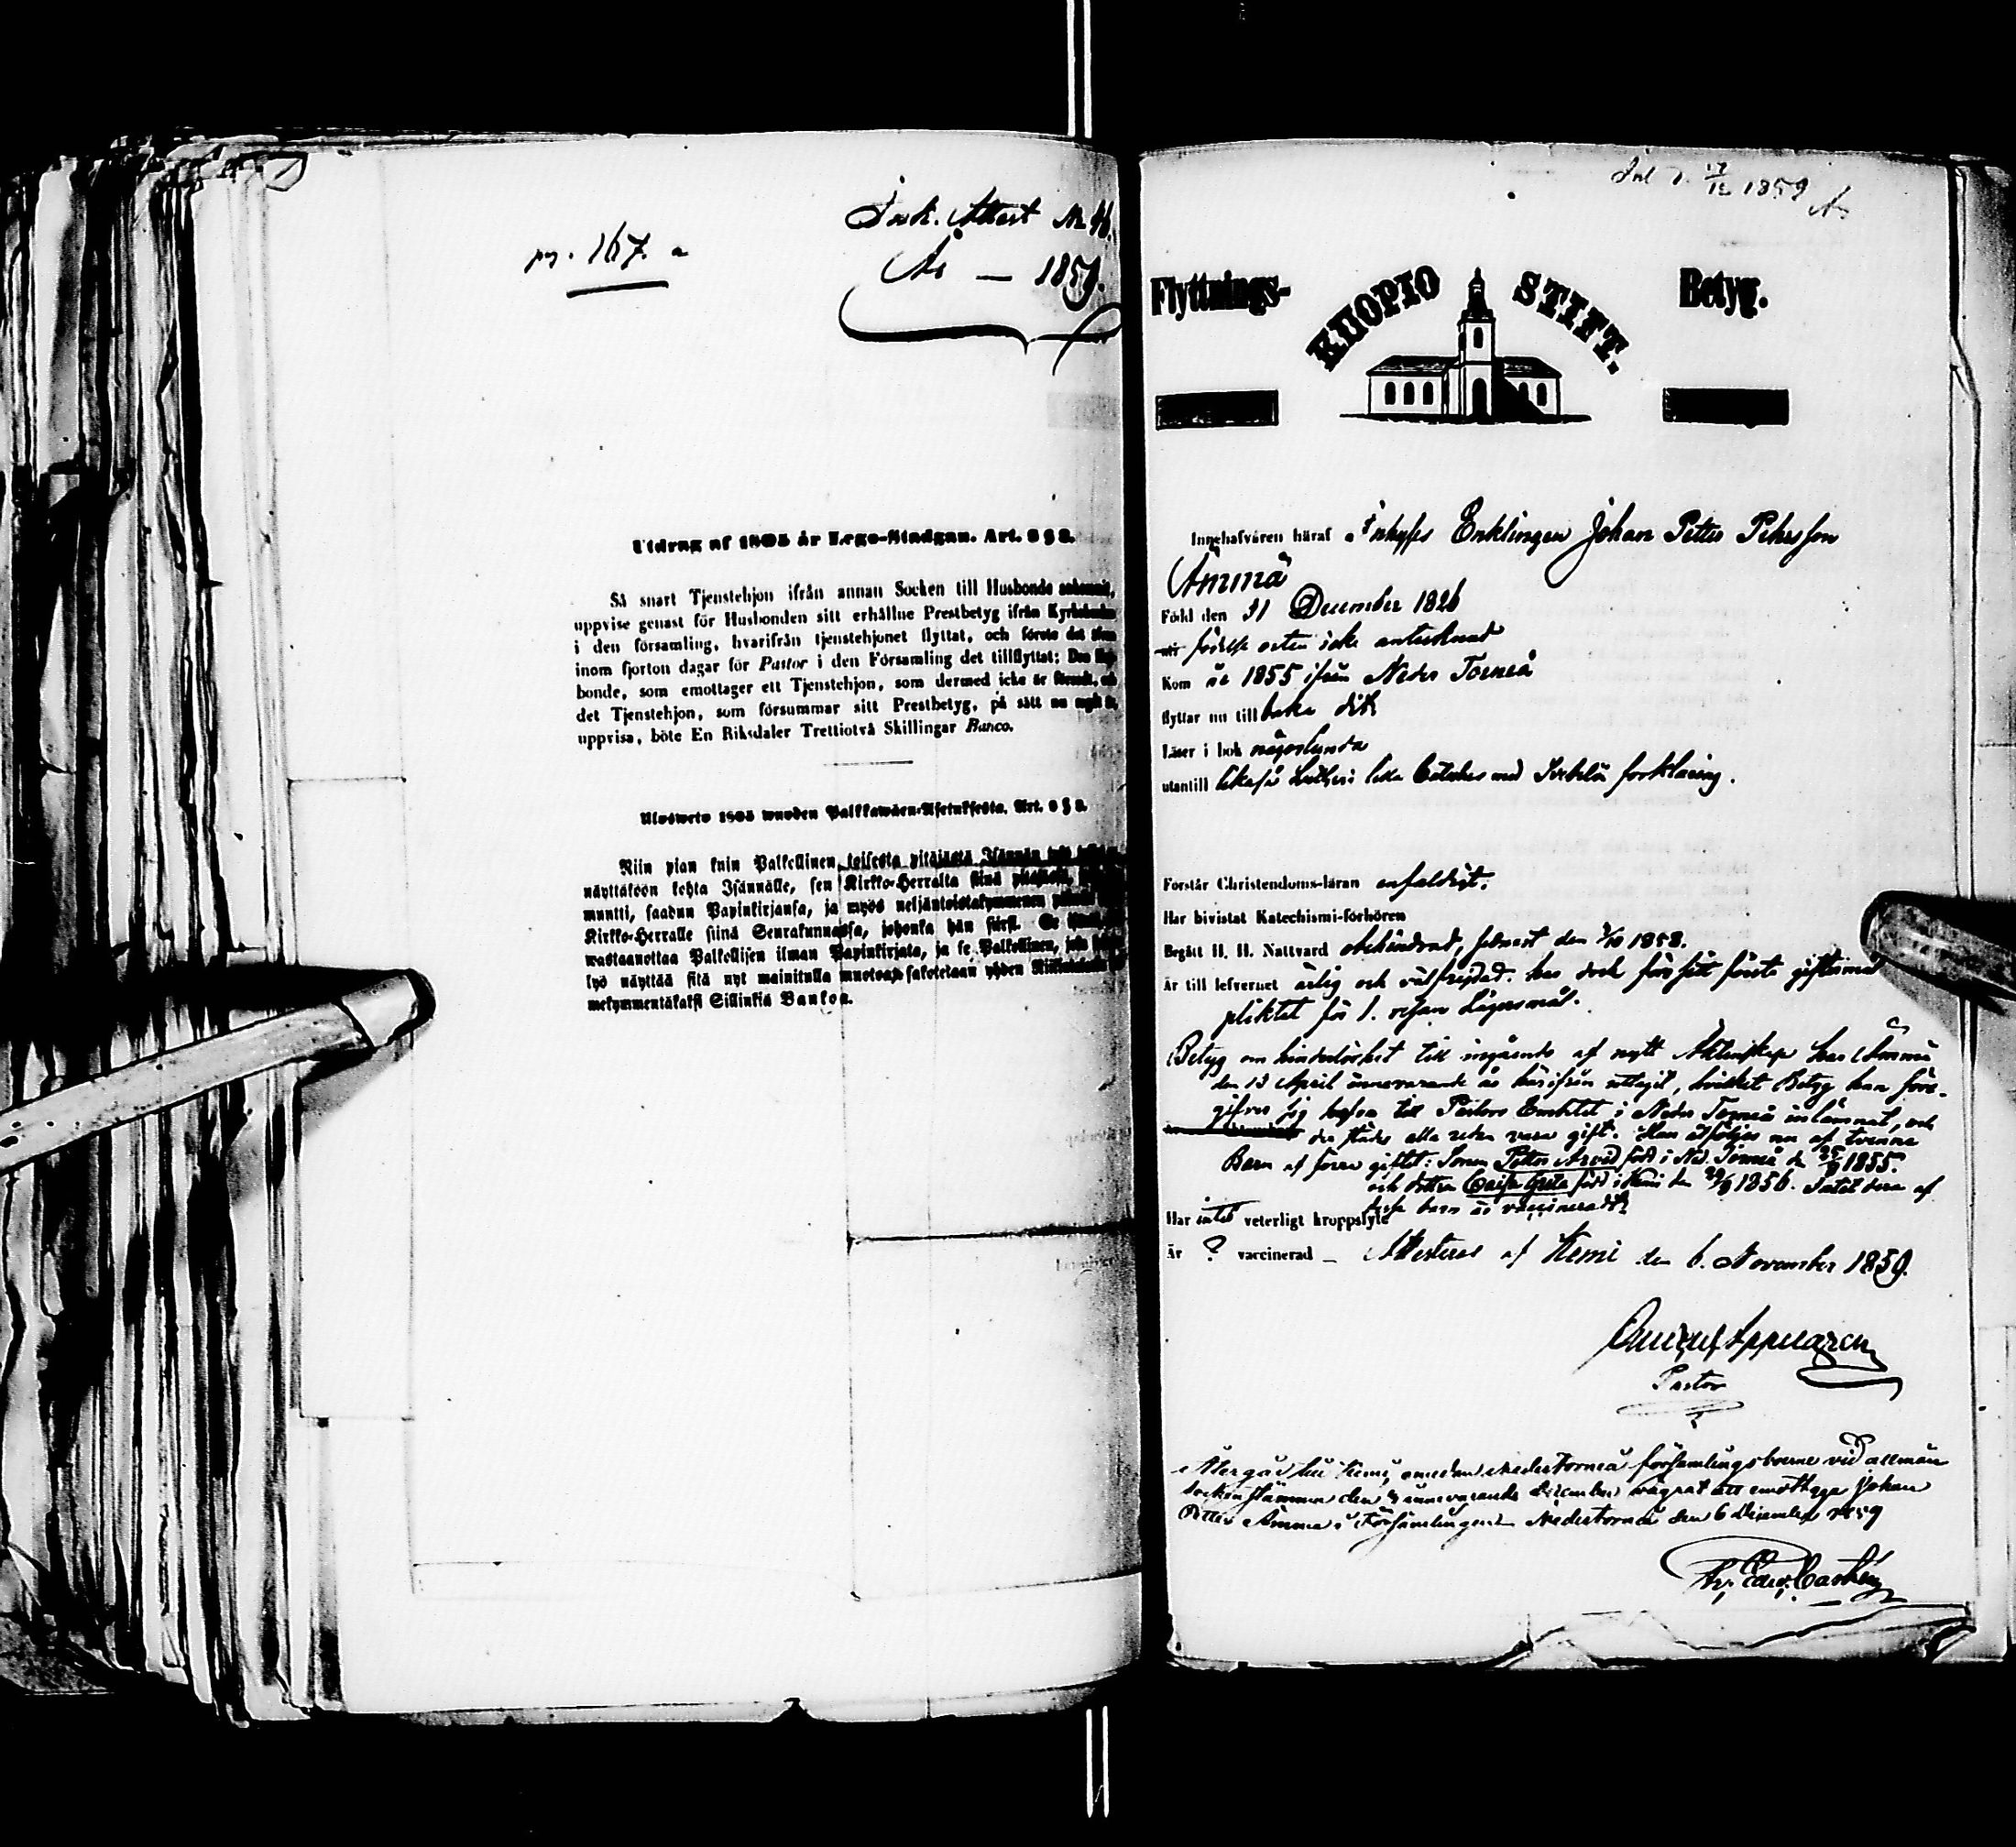 pag. 167. a
Ink. Attest No 46.
År — 1859.
Utdrag af 1805 år Lego-Stadgan. Art. 8 § 2.
Så snart Tjenstehjon ifrån annan Socken till Husbonde ankommit,
uppvise genast för Husbonden sitt erhållne Prestbetyg ifrån
i den församling, hvarifrån tjenstehjonet flyttat, och förete det
inom fjorton dagar för Pastor i den Församling det tillflyttat;
bonde, som emottager ett Tjenstehjon, som dermed icke är försedt,
det Tjenstehjon, som försummar sitt Prestbetyg, på sätt nu
uppvisa, böte En Riksdaler Trettiotvå Skillingar Banco.
Ulosweto 1805 wuoden Palkkawäen-Asetuksesta. Art. 8 § 2.
Niin pian kuin Palkollinen toisesta pitäjästä Isännän
näyttäköön kohta Isännälle, sen Kirkko-Herralta siinä
muutti, saadun Papinkirjansa, ja myös neljäntoistakymmenen
Kirkko-Herralle siinä Seurakunnassa, johonka hän siirsi.
wastaanottaa Palkollisen ilman Papinkirjata, ja se Palkollinen,
lyö näyttää sitä nyt mainitulla muotoa, sakotetaan yhden
mekymmentäkaksi Sillinkiä Bankoa.
Inl d. 17/12 1859
Flyttnings- KUOPIO STIFT. Betyg.
Innehafvaren häraf Inhyses Enklingen Johan Petter Pehrsson
Ämmä
Född den 31 December 1826
födelse orten icke antecknad
Kom år 1855 ifrån Neder Torneå
flyttar nu till baka dit
Läser i bok någorlunda
utantill likaså Lutheri lilla Cateches med Svebelii förklaring.
Förstår Christendoms-läran enfaldigt.
Har bivistat Katechismi-förhören
Begått H. H. Nattvard obehindrad, senast den 3/10 1858.
Är till lefvernet ärlig och välfrejdad. har dock för sitt första giftermål
pliktat för 1. resan Lägersmål.
Betyg om hinderlöshet till ingående af nytt Äktenskap har Ämmä
den 13 April innevarande år härifrån uttagit, hvilket Betyg han före-
gifver sig hafva till Pastors Embetet i Neder Torneå inlämnat, och
der städes alla redan vara gift. Han åtföljes nu af tvenne
Barn af förra giftet: Sonen Petter Arvid född i Ned. Torneå d. 25/9 1855.
och dottren Caisa Greta född i Kemi den 29/9 1856. Intet dera af
dessa barn är vaccineradt.
Har intet veterligt kroppslyte
Är ? vaccinerad — Attesteras af Kemi den 6. November 1859.
Pastor
Återgår till Kemi, emedan Nedertorneå församlingsboerne vid allmän
sockenstämma den 4 innevarande December vägrat att emottaga Johan
Petter Ämmä i Församlingen. Nedertorneå den 6 December 1859
Castrén